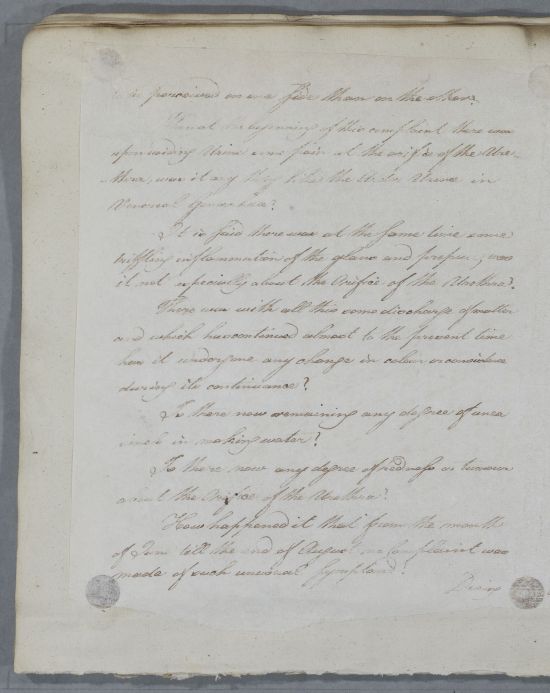 to be perceived on one side than on the other.
at the beginning of this complaint there was
upon voiding Urine some pain at the orifice of the Ure-
thra, was it any thing like the Ardor Urinæ in
Venereal Gonorrhæa?
It is said there was at the same time some
triffling inflammation of the glans and prepuce, was
it not especially about the Orifice of the Urethra.
There was with all this some discharge of matter
and which has continued almost to the present time
has it undergone any change in colour or consistence
during its continuance?
Is there now remaining any degree of unea
in making water?
Is there now any degree of redness or tumour
about the Orifice of the Urethra?
How happened it that from the month
of June till the end of August no Complaint was
made of such unusual Symptoms?